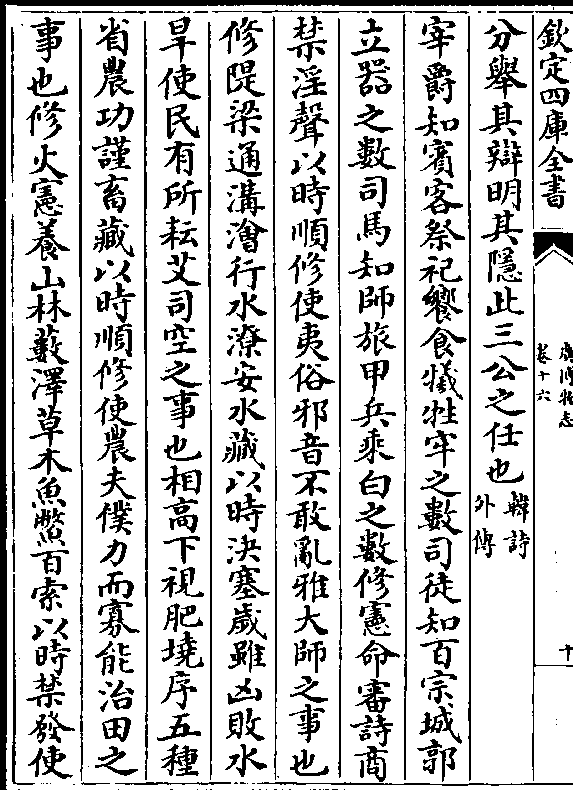 欽定四庫全書
廣博物志
卷十六
十
分舉其辯明其隱此三公之任也韓詩外傳
宰爵知賓客祭祀饗食犧牲牢之數司徒知百宗城郭
立器之數司馬知師旅甲兵乘白之數修憲命審詩商
禁淫聲以時順修使夷俗邪音不敢亂雅大師之事也
修隄梁通溝澮行水潦安水藏以時決塞歲雖凶敗水
旱使民有所耘艾司空之事也相高下視肥墝序五種
省農功謹畜藏以時順修使農夫僕力而寡能治田之
事也修火憲養山林藪澤草木魚鱉百索以時禁發使